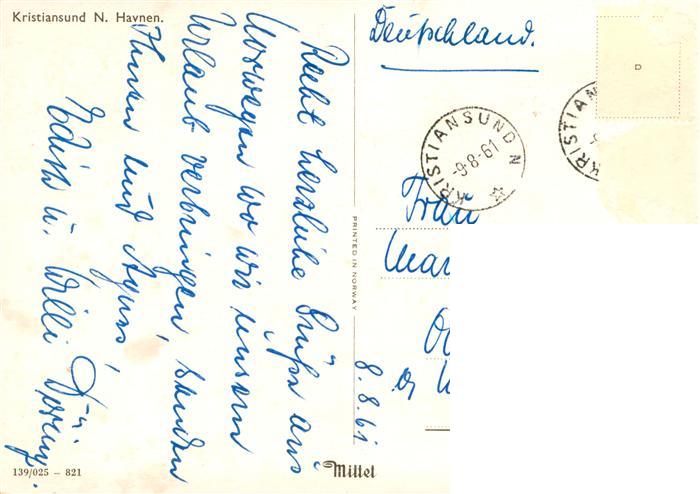 Kristiansund N. Havnen.
Recht herzliche Grüße aus
Norwegen wo wir unsern
Urlaub verbringen, senden
Ihnen und
Edith u. Willi Döring.
139/025 – 821
PRINTED IN NORWAY
Mittet
8.8.61
Deutschland.
KRISTIANSUND N
-9-8-61
KRISTIAN
D
Frau